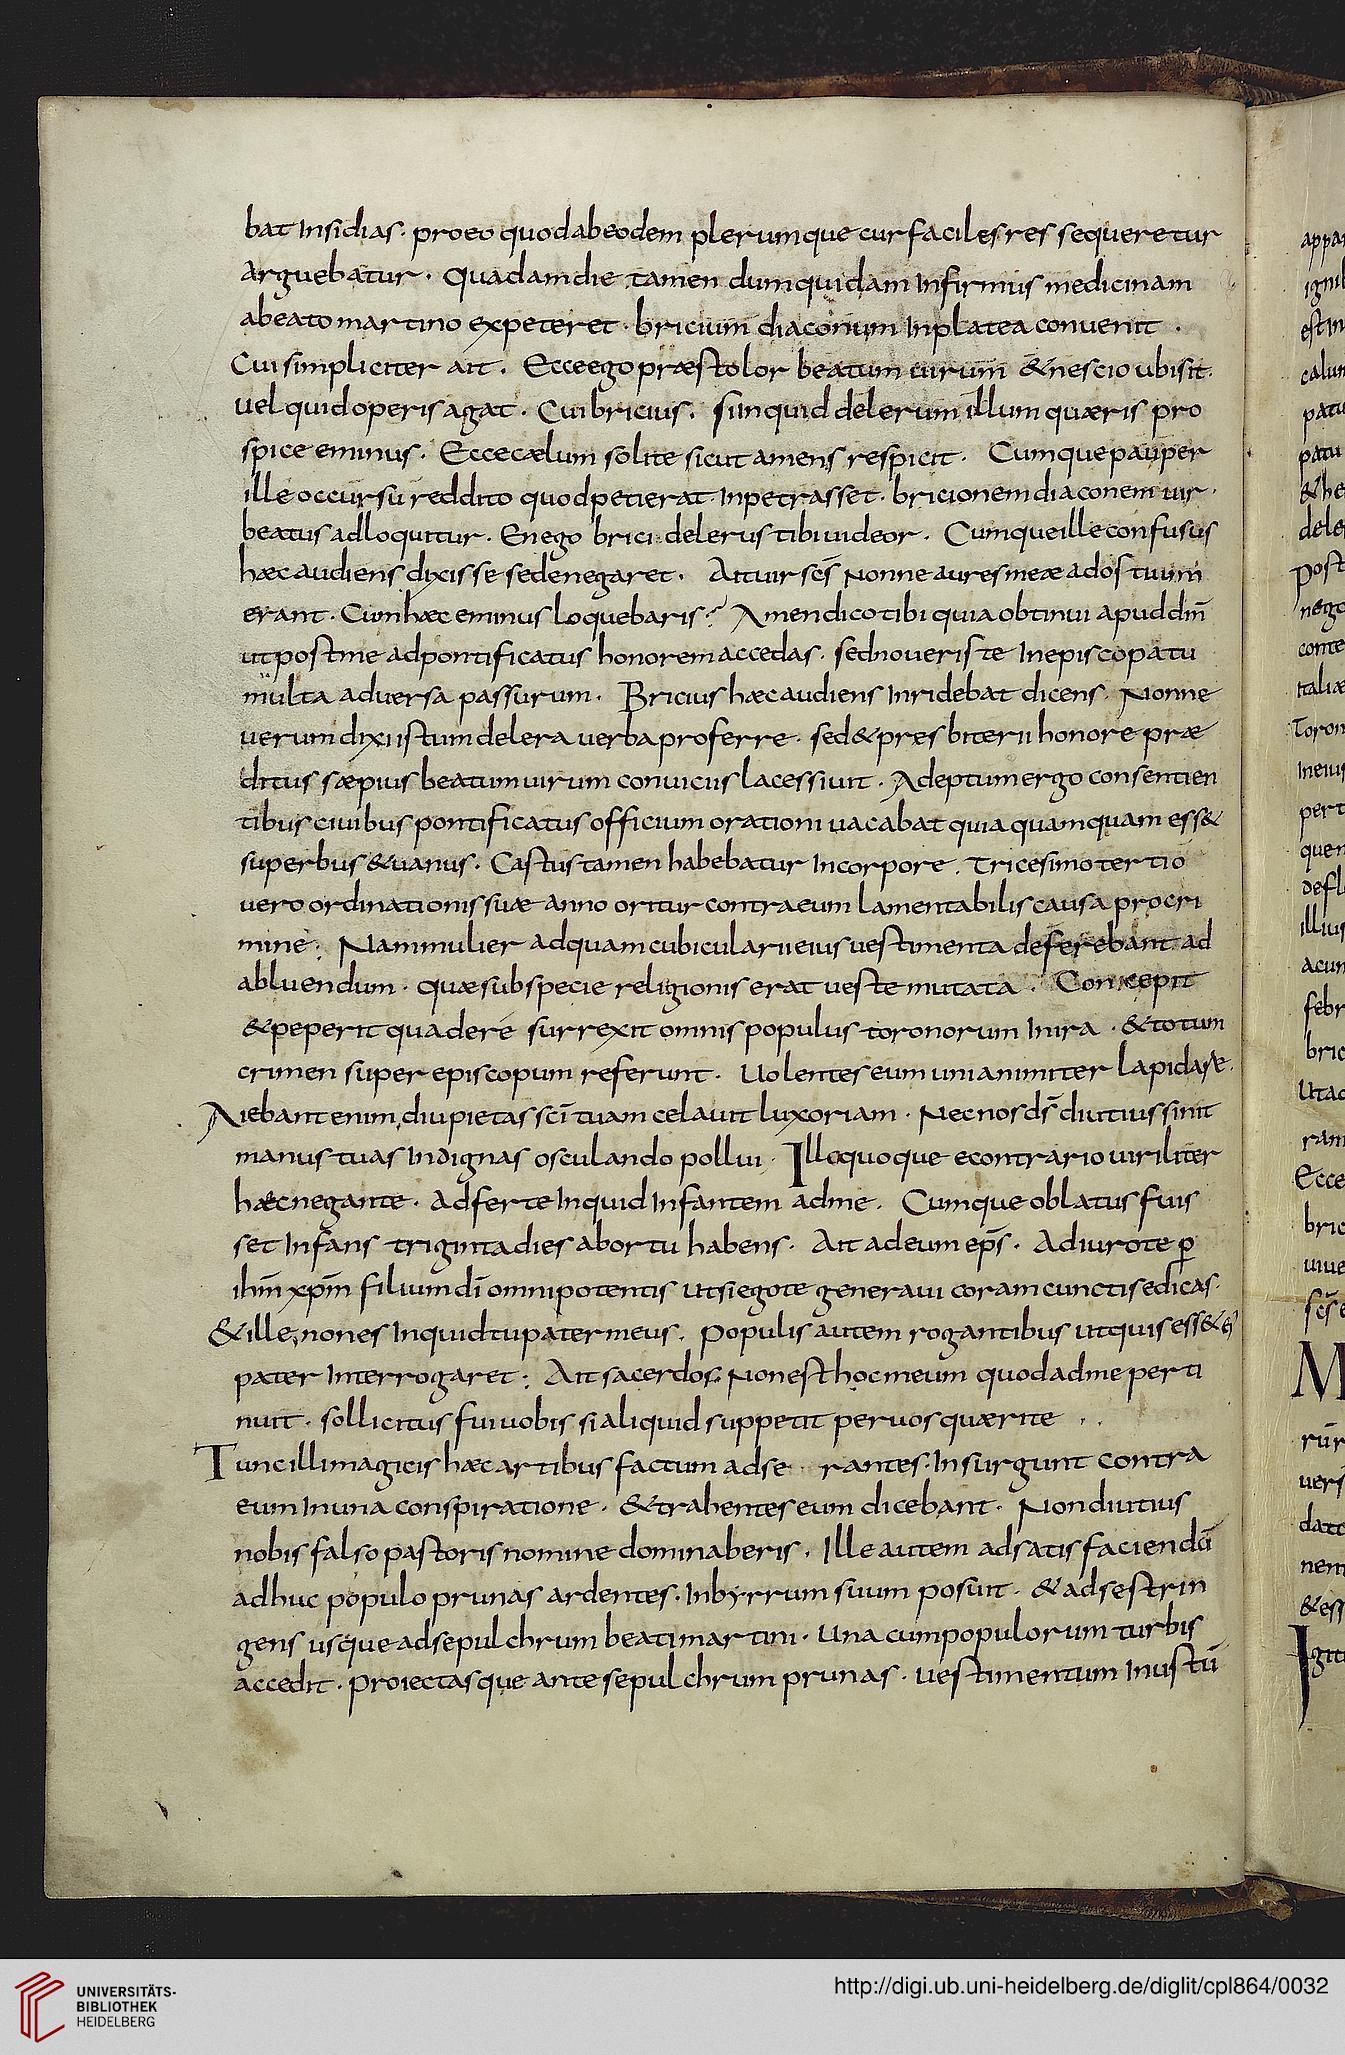 bat Insidias. proeo quodabeodem plerumque cur faciles res sequeretur
arguebatur. Quadamdie tamen dumquidam Infirmus medicinam
abeato martino expeteret. bricium diaconum Inplatea conuenit.
Cui simpliciter ait. Ecce ego præstolor beatum uirum & nescio ubi sit.
uel quid operis agat. Cui bricius. si inquid delerum illum quæris pro
spice eminus. Ecce cælum solite sicut amens respicit. Cumque pauper
ille occursu reddito quod petierat Inpetrasset. bricionem diaconem uir
beatus adloquitur. En ego brici delerus tibi uideor. Cumque ille confusus
hæc audiens dixisse se denegaret. Ait uir scs̄ Nonne aures meæ ad os tuum
erant. Cum hæc eminus loquebaris? Amen dico tibi quia obtinui apud dm̄
ut post me ad pontificatus honorem accedas. sed noueris te In episcopatu
multa aduersa passurum. Bricius hæc audiens Inridebat dicens. Nonne
uerum dixi istum delera uerba proferre. sed & presbiterii honore præ
ditus sæpius beatum uirum conuiciis lacessiuit. Adeptum ergo consentien
tibus ciuibus pontificatus officium orationi uacabat quia quamquam ess&
superbus & uanus. Castus tamen habebatur Incorpore. Tricesimo tertio
uero ordinationis suæ anno oritur contra eum lamentabilis causa pro cri
mine. Nam mulier ad quam cubicularii eius uestimenta deferebant ad
abluendum. quæ sub specie religionis erat ueste mutata. Concepit
& peperit qua de re surrexit omnis populus toronorum In ira. & totum
crimen super episcopum referunt. Uolentes eum unianimiter lapidare.
Aiebant enim, diu pietas sci̅ tuam celauit luxoriam. Nec nos ds̄ diutius sinit
manus tuas Indignas osculando pollui. Illo quoque e contrario uiriliter
hæc negante. Adferte Inquid Infantem ad me. Cumque oblatus fuis
set Infans triginta dies ab ortu habens. Ait ad eum eps̄. Adiuro te p̱
ihm̄ xpm̄ filium di̅ omnipotentis ut si ego te generaui coram cunctis edicas.
& ille, non es Inquid tu pater meus. Populis autem rogantibus ut quis ess& ei
pater Interrogaret; Ait sacerdos. Non est hoc meum quod ad me perti
nuit. sollicitus fui uobis si aliquid suppetit per uos quærite
Tunc illi magicis hæc artibus factum adse rantes. Insurgunt contra
eum In una conspiratione. & trahentes eum dicebant. Non diutius
nobis falso pastoris nomine dominaberis. Ille autem ad satisfaciendū
adhuc populo prunas ardentes. In byrrum suum posuit. & ad se strin
gens usque ad sepulchrum beati martini. Una cum populorum turbis
accedit. Proiectasque ante sepulchrum prunas. uestimentum Inustū
UNIVERSITÄTS-
BIBLIOTHEK
HEIDELBERG
http://digi.ub.uni-heidelberg.de/diglit/cpl864/0032